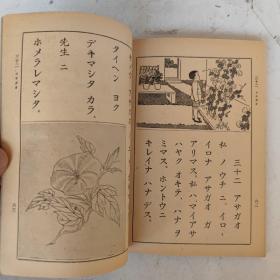 三十二 アサガオ
私 ノ ウチ ニ、イロ、
イロナ アサガオ ガ
アリマス。私 ハ マイアサ
ハヤク オキテ ハナ ヲ
ミマス。ホントウニ
キレイナ ハナ デス。
タイヘン ヨク
デキマシタ カラ、
先生 ニ
ホメラレマシタ。